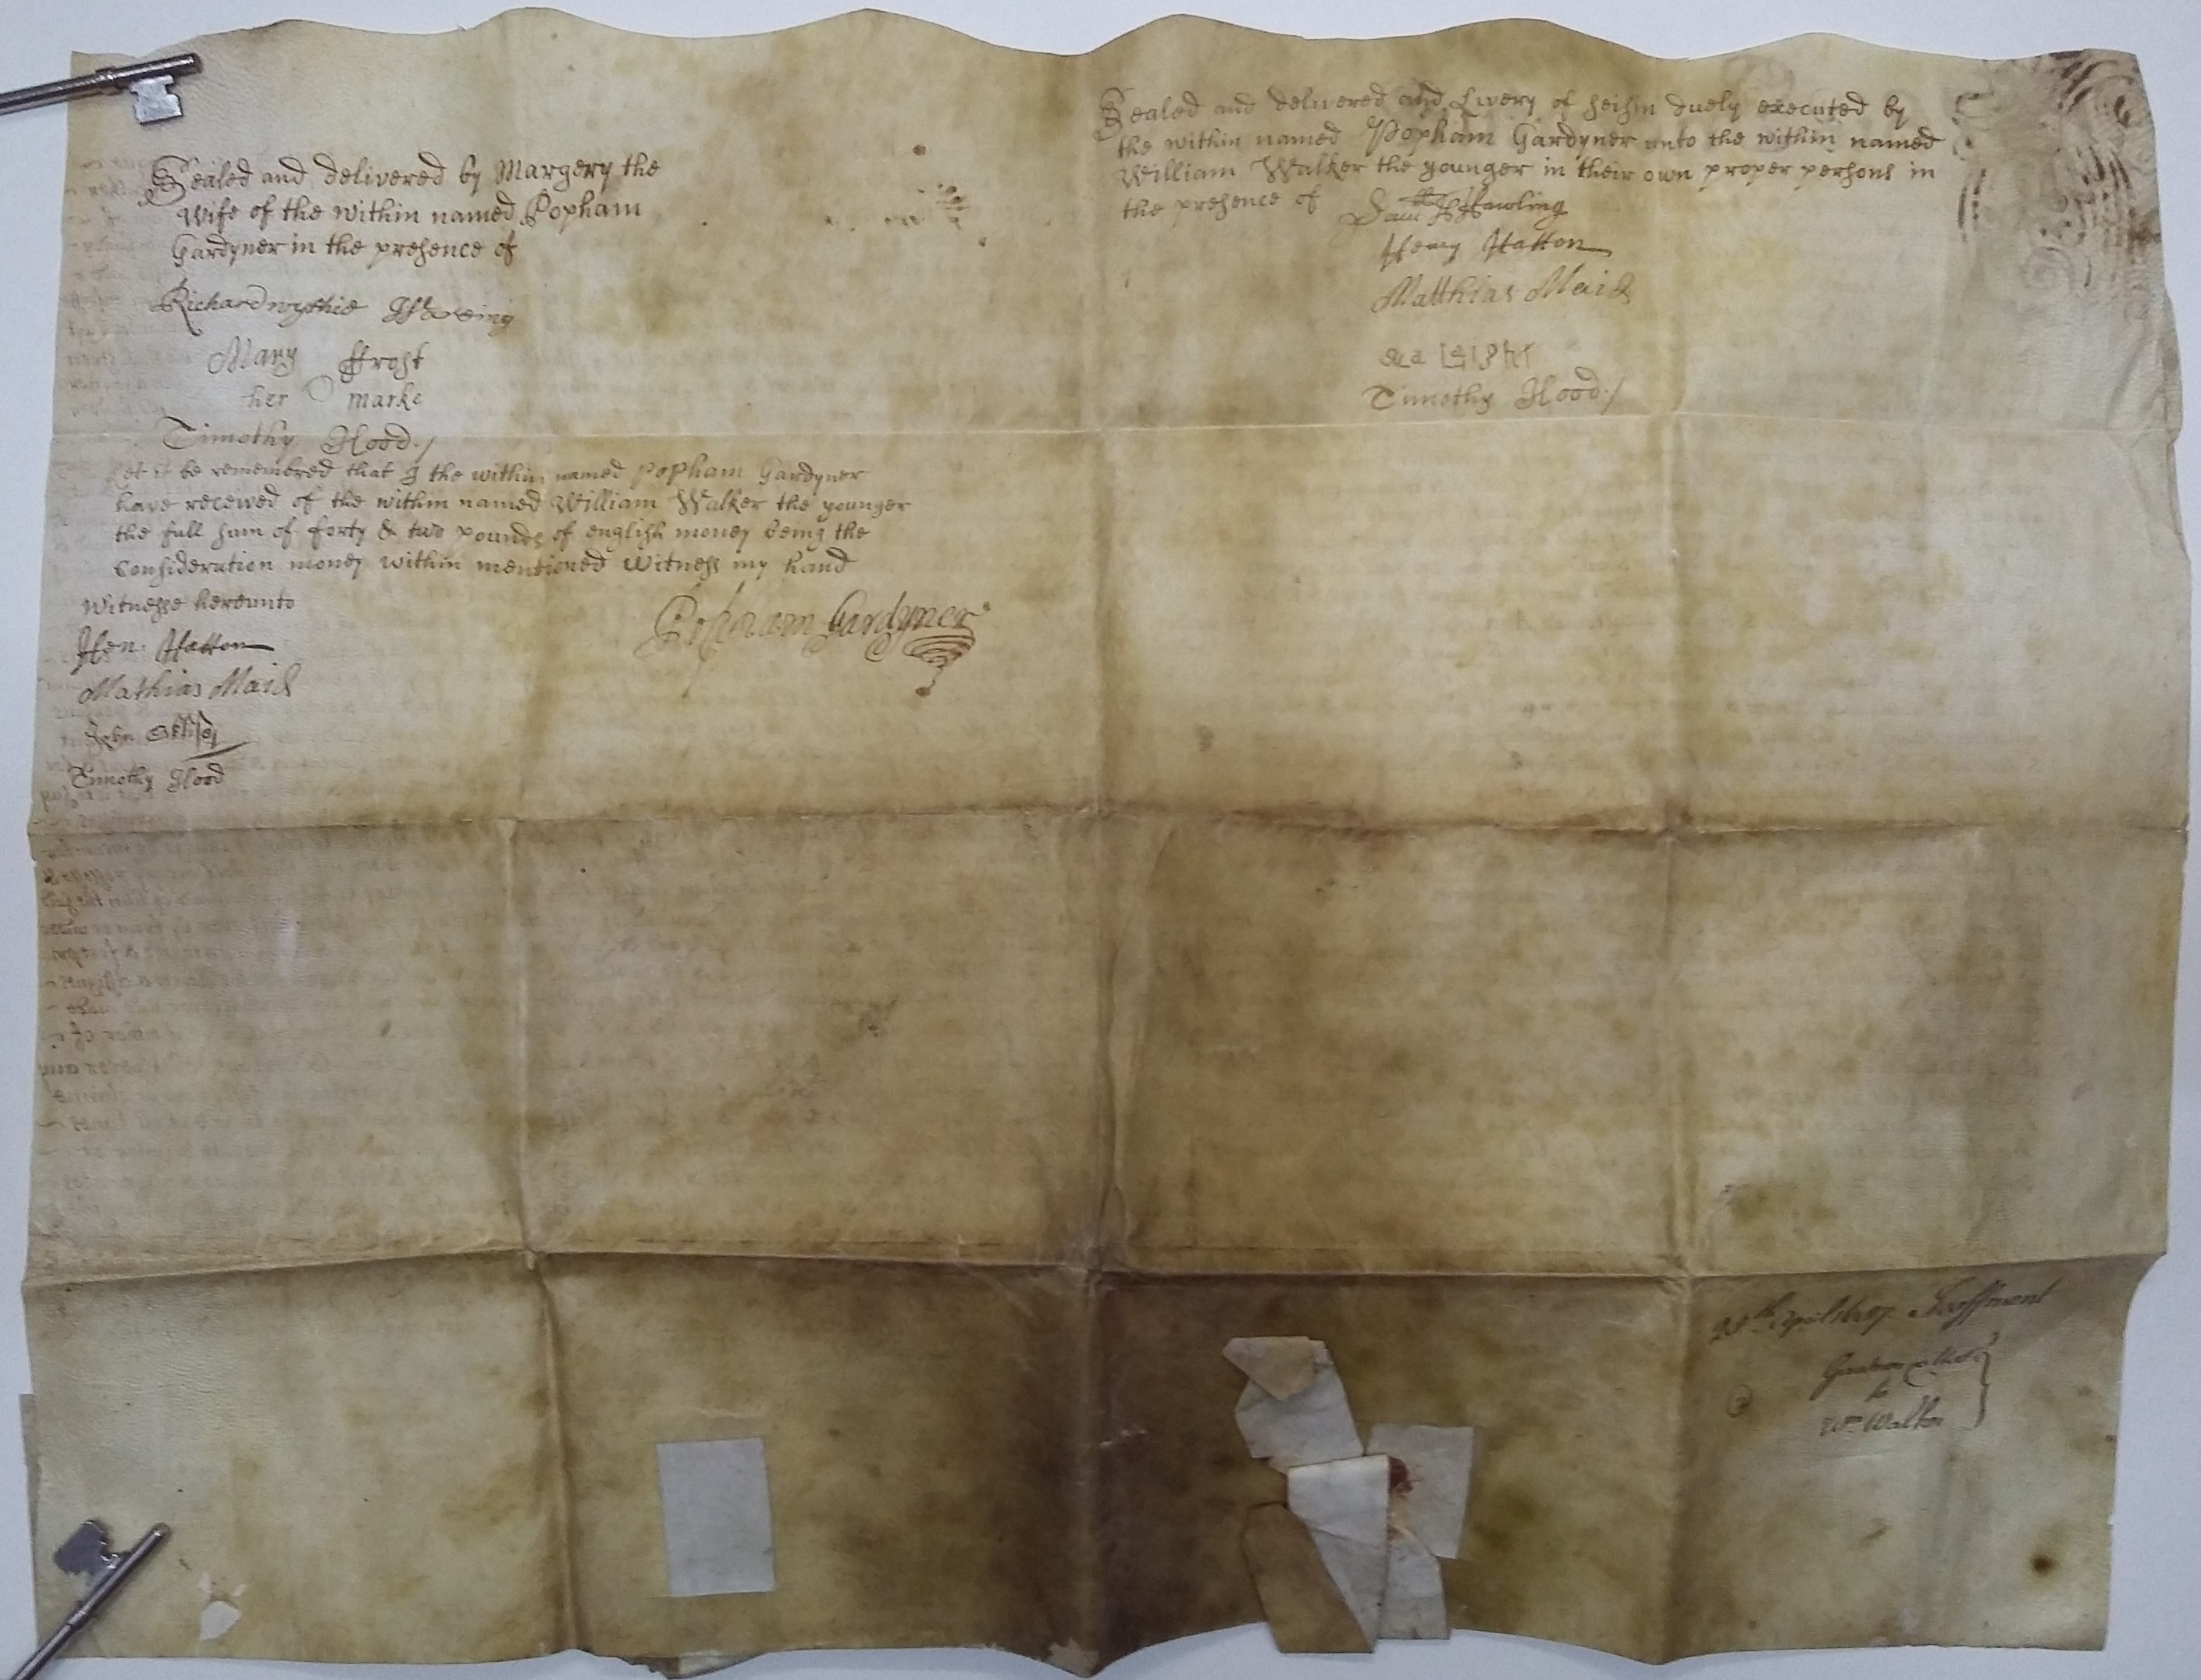 Sealed and delivered by Margery the
Wife of the within named Popham
Gardyner in the presence of
Richard
Mary ffrost
her marke
Timothy Hood
Let it be remembred that I the within named Popham Gardyner
have received of the within named William Walker the younger
the full sum of forty & two pounds of english money being the
Consideration money within mentioned Witness my hand
Witnesse hereunto
Popham Gardyner
Hen: Hatton
Mathias Maid
John
Timothy Hood
Sealed and delivered and Livery of seisin duely executed by
the within named Popham Gardyner unto the within named
William Walker the younger in their own proper persons in
the presence of
Henry Hatton
Matthias Maid
Timothy Hood
April Feoffment
to
Wm Walker